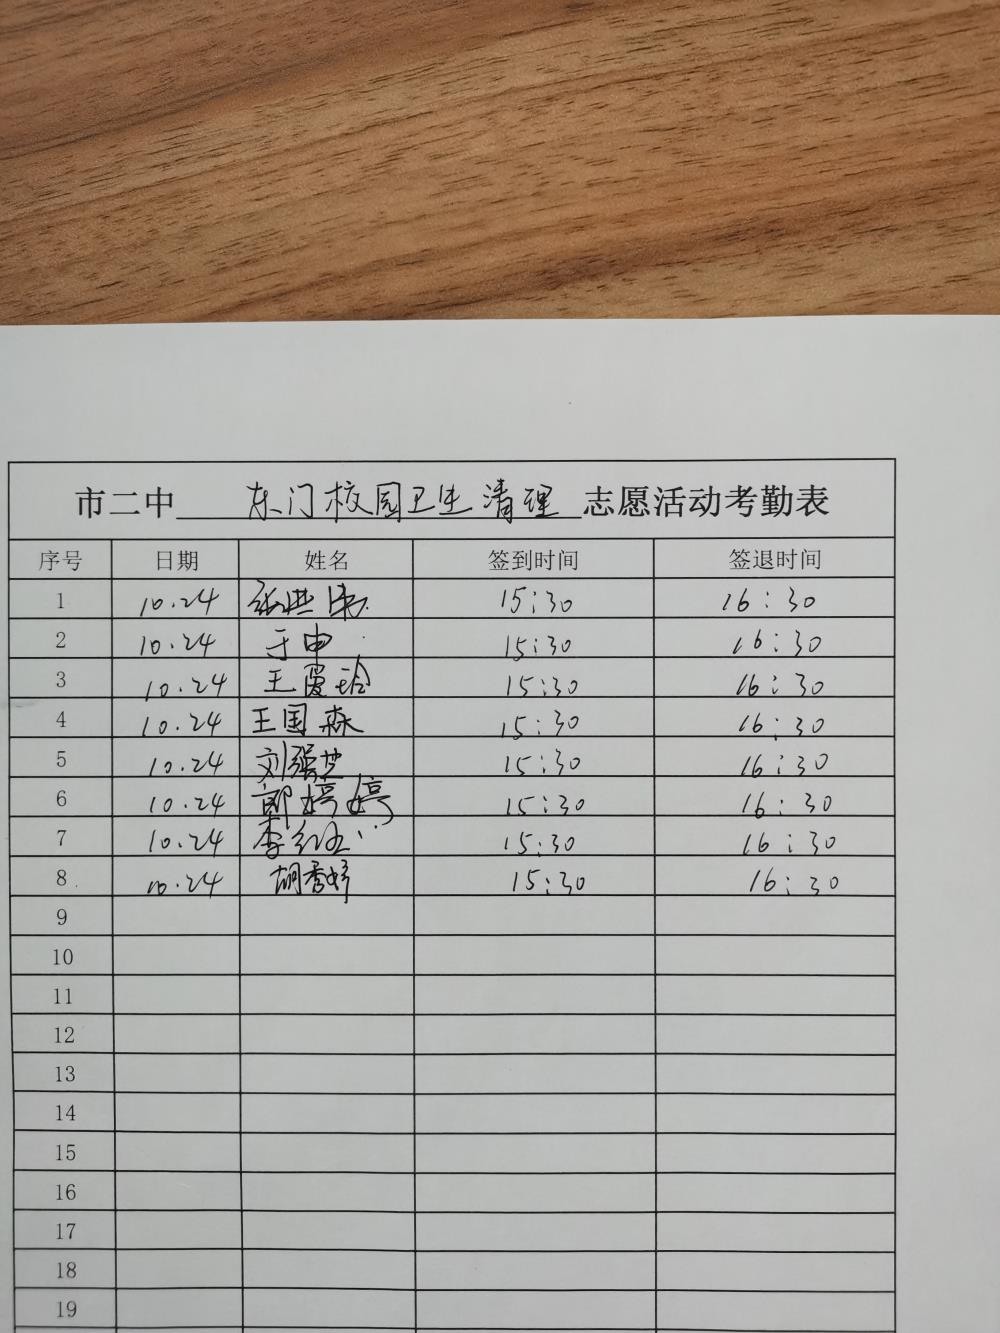 市二中 东门校园卫生清理 志愿活动考勤表
序号 日期 姓名 签到时间 签退时间
1 10.24 15:30 16:30
2 10.24 于申 15:30 16:30
3 10.24 王爱玲 15:30 16:30
4 10.24 王国森 15:30 16:30
5 10.24 刘强芝 15:30 16:30
6 10.24 郎婷婷 15:30 16:30
7 10.24 15:30 16:30
8 10.24 胡秀婷 15:30 16:30
9
10
11
12
13
14
15
16
17
18
19